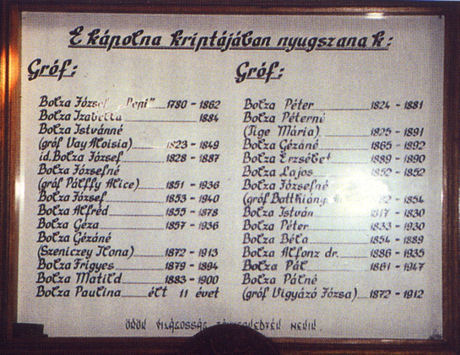 E kápolna kriptájában nyugszanak:
Gróf:
Bolza József "Pepi" 1780 - 1862
Bolza Izabella 1884
Bolza Istvánné
(gróf Vay Aloisia) 1823 - 1849
id. Bolza József 1828 - 1887
Bolza Józsefné
(gróf Pálffy Alice) 1851 - 1936
Bolza József 1853 - 1940
Bolza Alfréd 1855 - 1878
Bolza Géza 1857 - 1936
Bolza Gézáné
(Szeniczey Ilona) 1872 - 1913
Bolza Frigyes 1879 - 1894
Bolza Matild 1883 - 1900
Bolza Paulina élt 11 évet
Gróf:
Bolza Péter 1824 - 1881
Bolza Péterné
(Jige Mária) 1825 - 1891
Bolza Gézáné 1865 - 1892
Bolza Erzsébet 1889 - 1890
Bolza Lajos 1852 - 1852
Bolza Józsefné
(gróf Batthiány - 1854
Bolza István 1817 - 1830
Bolza Péter 1833 - 1930
Bolza Béla 1854 - 1889
Bolza Alfonz dr. 1886 - 1935
Bolza Pál 1861 - 1947
Bolza Pálné
(gróf Vigyázó Józsa) 1872 - 1912
ÖRÖK VILÁGOSSÁG NEKIK